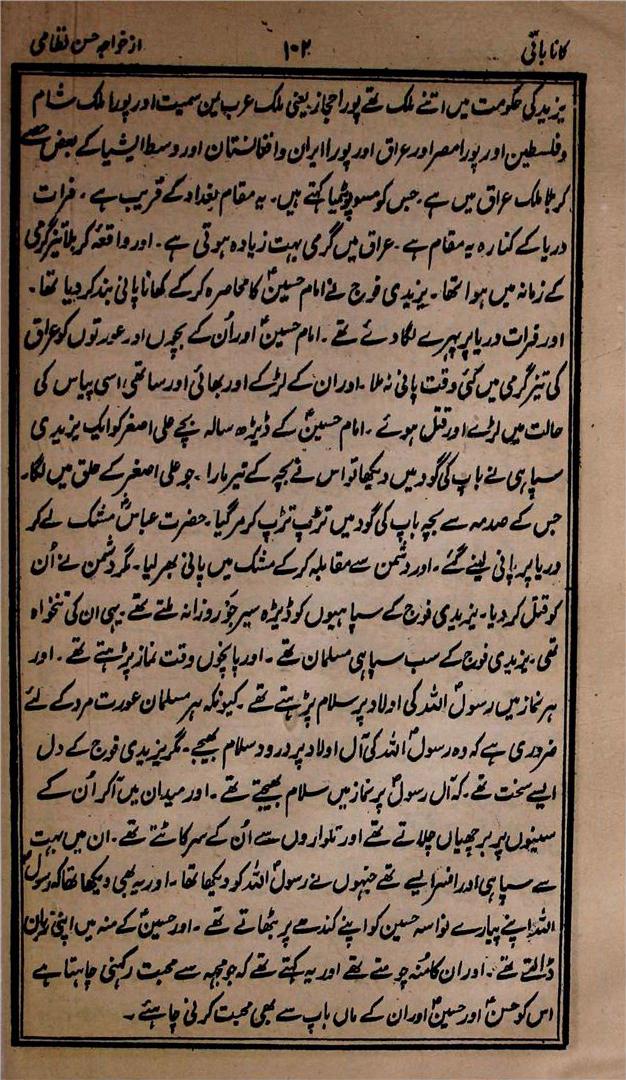 کانا باتی ۱۰۲ از خواجہ حسن نظامی
یزید کی حکومت میں اتنے ملک تھے پورا حجاز یعنی ملک عرب یمن سمیت اور پورا ملک شام
و فلسطین اور پورا مصر اور عراق اور پورا ایران و افغانستان اور وسط ایشیا کے بعض حصے
کربلا ملک عراق میں ہے۔ جس کو مسوپوٹمیا کہتے ہیں۔ یہ مقام بغداد کے قریب ہے۔ فرات
دریا کے کنارہ یہ مقام ہے۔ عراق میں گرمی بہت زیادہ ہوتی ہے۔ اور واقعہ کربلا تیز گرمی
کے زمانہ میں ہوا تھا۔ یزیدی فوج نے امام حسینؑ کا محاصرہ کر کے کھانا پانی بند کر دیا تھا۔
اور فرات دریا پر پہرے لگا دئے تھے۔ امام حسینؑ اور اُن کے بچوں اور عورتوں کو عراق
کی تیز گرمی میں کئی وقت پانی نہ ملا۔ اور ان کے لڑکے اور بھائی اور ساتھی اسی پیاس کی
حالت میں لڑے اور قتل ہوئے۔ امام حسینؑ کے ڈیڑھ سالہ بچے علی اصغر کو ایک یزیدی
سپاہی نے باپ کی گود میں دیکھا تو اس نے بچہ کے تیر مارا۔ جو علی اصغر کے حلق میں لگا۔
جس کے صدمہ سے بچہ باپ کی گود میں تڑپ تڑپ کر مر گیا۔ حضرت عباسؑ مشک لے کر
دریا پر پانی لینے گئے۔ اور دشمن سے مقابلہ کر کے مشک میں پانی بھر لیا۔ مگر دشمن نے اُن
کو قتل کر دیا۔ یزیدی فوج کے سپاہیوں کو ڈیڑہ سیر جَو روزانہ ملتے تھے۔ یہی ان کی تنخواہ
تھی۔ یزیدی فوج کے سب سپاہی مسلمان تھے۔ اور پانچوں وقت نماز پڑہتے تھے۔ اور
ہر نماز میں رسولؐ اللہ کی اولاد پر سلام پڑہتے تھے۔ کیونکہ ہر مسلمان عورت مرد کے لئے
ضروری ہے کہ وہ رسولؐ اللہ کی آل اولاد پر درود سلام بھیجے۔ مگر یزیدی فوج کے دل
ایسے سخت تھے۔ کہ آل رسولؐ پر نماز میں سلام بھیجتے تھے۔ اور میدان میں آکر اُن کے
سینوں پر برچھیاں چلاتے تھے اور تلواروں سے اُن کے سر کاٹتے تھے۔ ان میں بہت
سے سپاہی اور افسر ایسے تھے جنہوں نے رسولؐ اللہ کو دیکھا تھا۔ اور یہ بھی دیکھا تھا کہ رسولؐ
اللہ اپنے پیارے نواسہ حسین کو اپنے کندہے پر بٹھاتے تھے۔ اور حسینؑ کے منہ میں اپنی زبان
ڈالتے تھے۔ اور ان کا مُنہ چومتے تھے اور یہ کہتے تھے کہ جو مجہہ سے محبت رکہنی چاہتا ہے
اس کو حسنؑ اور حسینؑ اور ان کے ماں باپ سے بھی محبت کرنی چاہئے۔